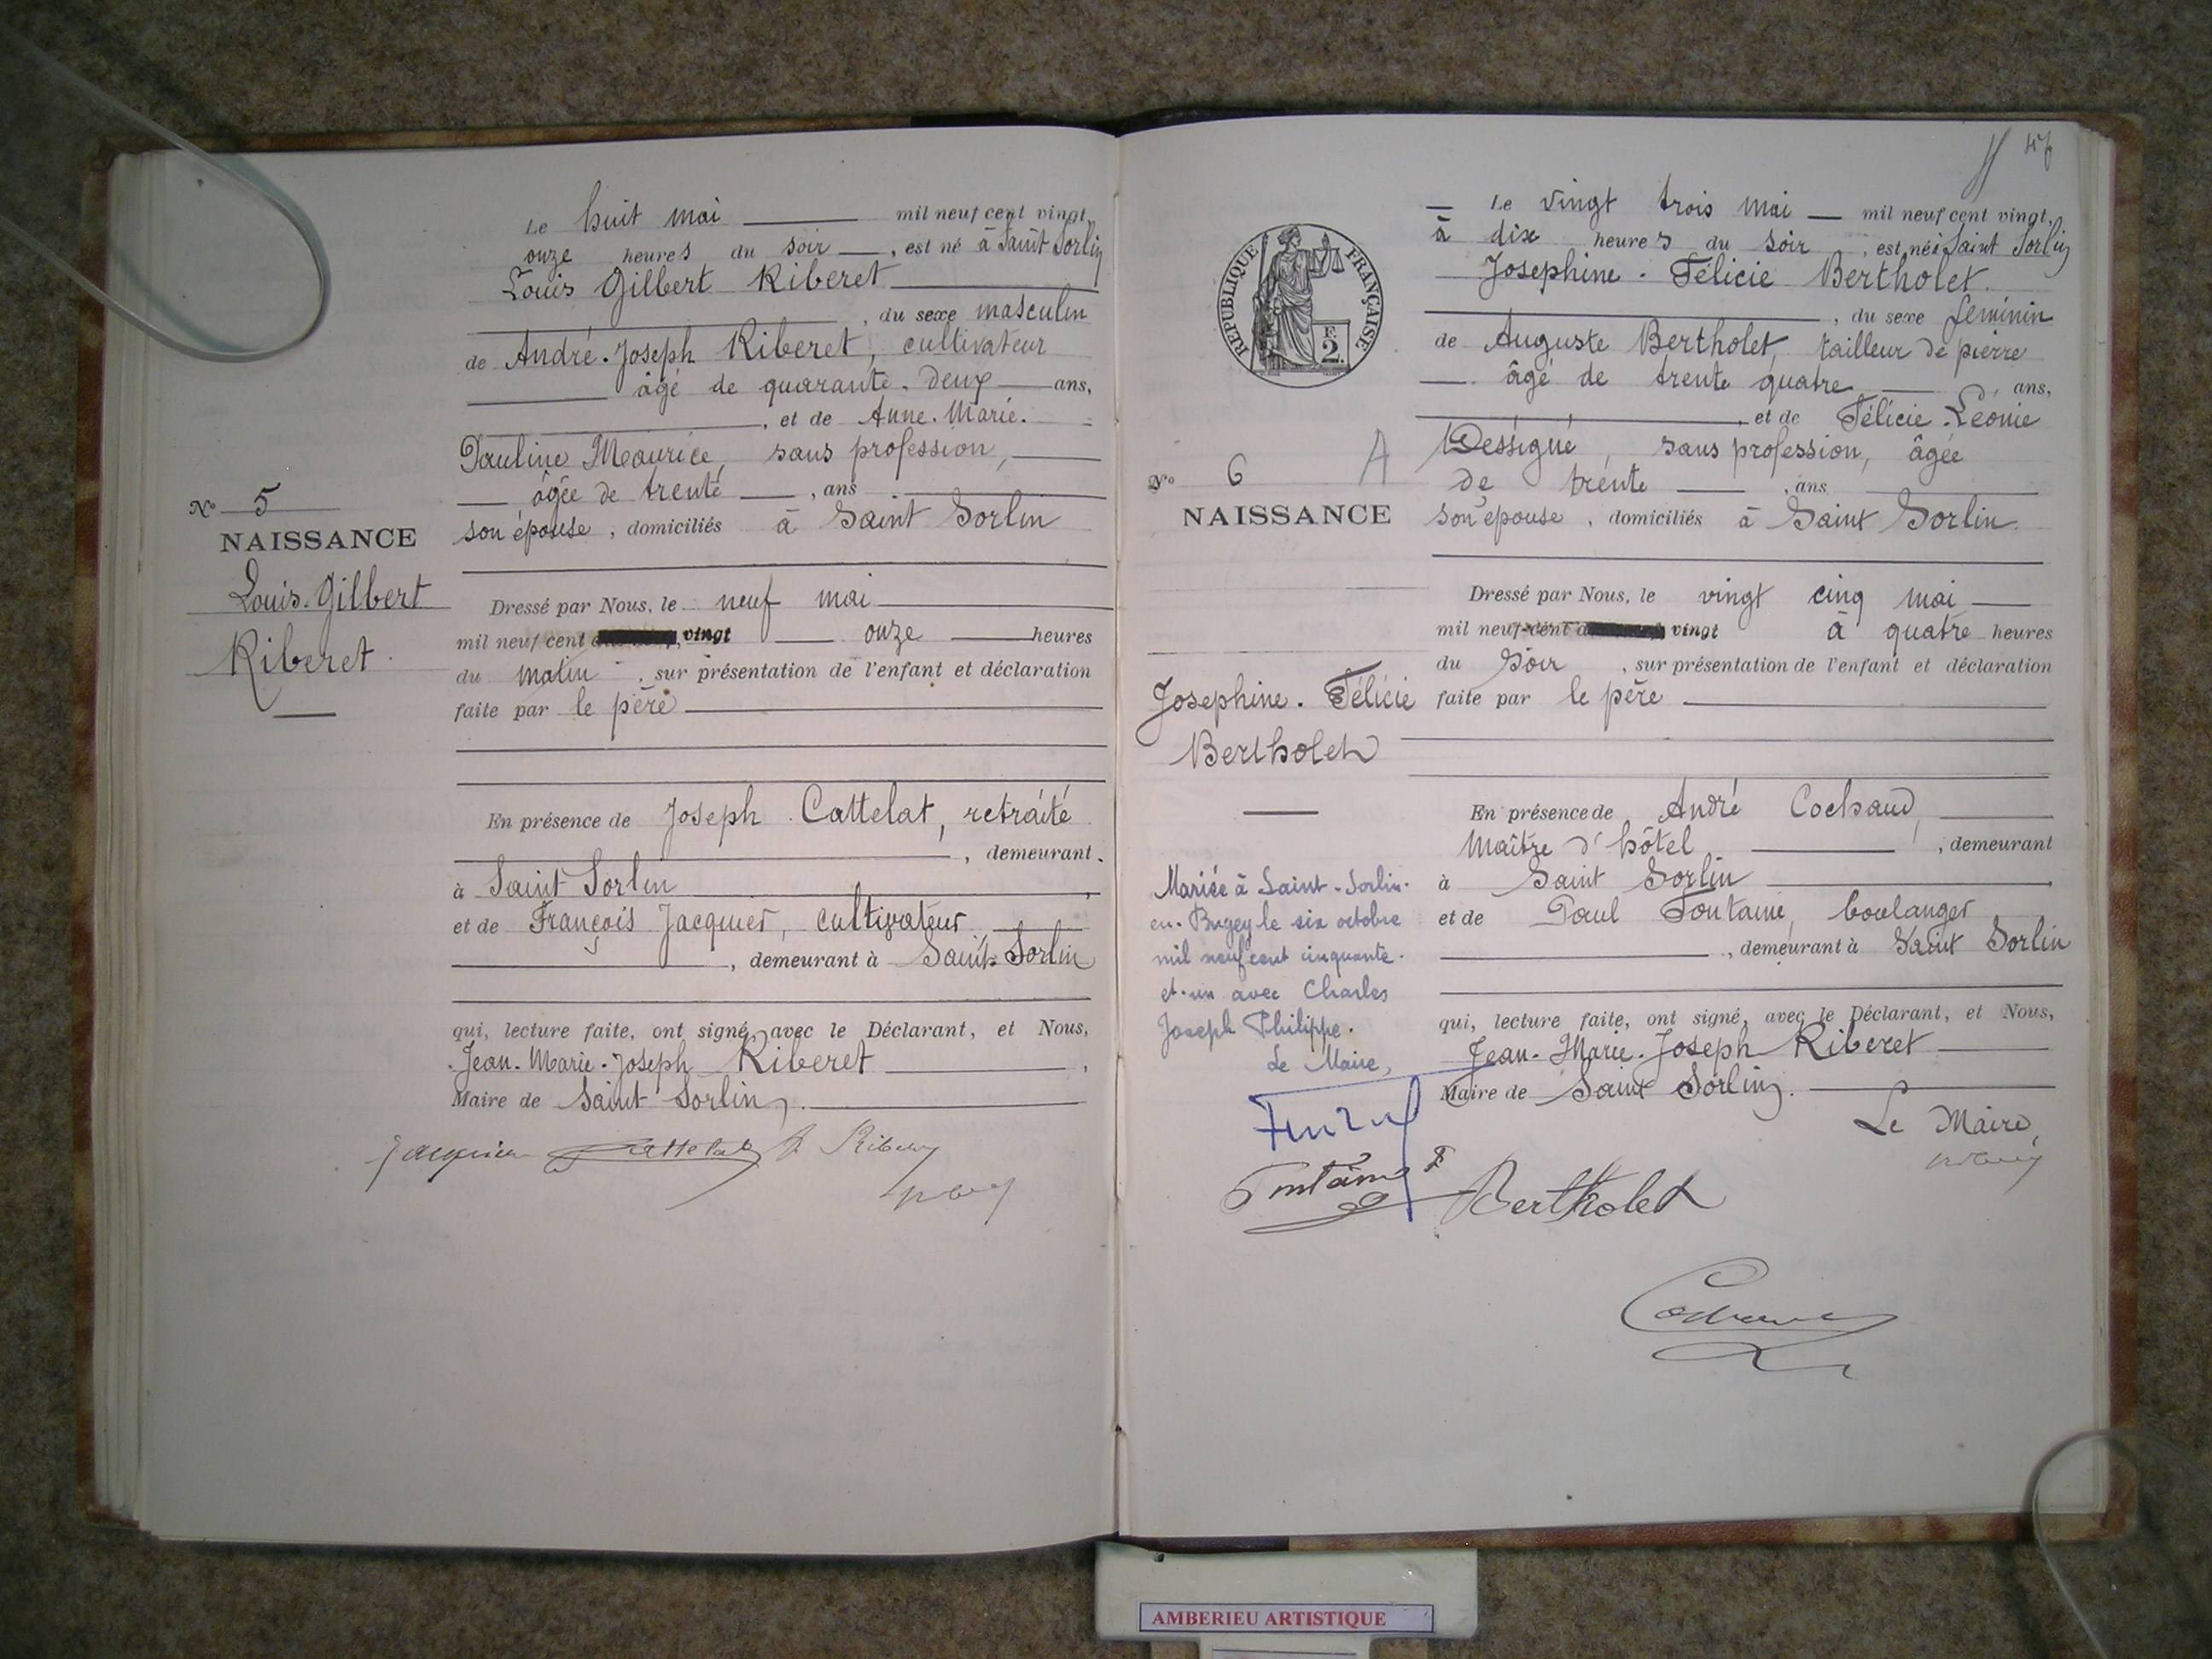 Le huit mai mil neuf cent vingt,
onze heures du soir, est né à Saint Sorlin
Louis Gilbert Riberet
, du sexe masculin
de André-Joseph Riberet, cultivateur
âgé de quarante-deux ans,
, et de Anne-Marie-
Pauline Maurice, sans profession,
âgée de trente, ans
son épouse, domiciliés à Saint Sorlin
No 5
NAISSANCE
Louis-Gilbert
Riberet
Dressé par Nous, le neuf mai
mil neuf cent vingt onze heures
du matin, sur présentation de l'enfant et déclaration
faite par le père
En présence de Joseph Cattelat, retraité
, demeurant
à Saint Sorlin,
et de François Jacquier, cultivateur
, demeurant à Saint-Sorlin
qui, lecture faite, ont signé, avec le Déclarant, et Nous,
Jean-Marie-Joseph Riberet,
Maire de Saint Sorlin.
Jacquier Cattelat Riberet
RÉPUBLIQUE FRANÇAISE
E
2
Le vingt trois mai mil neuf cent vingt,
à dix heures du soir, est née à Saint Sorlin
Josephine-Félicie Bertholet.
, du sexe féminin
de Auguste Bertholet, tailleur de pierre
âgé de trente quatre ans,
, et de Félicie-Léonie
Dessigné, sans profession, âgée
de trente, ans
son épouse, domiciliés à Saint Sorlin.
No 6 A
NAISSANCE
Josephine-Félicie
Bertholet
Dressé par Nous, le vingt cinq mai
mil neuf cent vingt à quatre heures
du soir, sur présentation de l'enfant et déclaration
faite par le père
En présence de André Cochaud,
Maître d'hôtel, demeurant
à Saint Sorlin
et de Paul Fontaine, boulanger
, demeurant à Saint Sorlin
qui, lecture faite, ont signé, avec le Déclarant, et Nous,
Jean-Marie-Joseph Riberet
Maire de Saint Sorlin.
Mariée à Saint-Sorlin-
en-Bugey le six octobre
mil neuf cent cinquante-
et-un avec Charles
Joseph Philippe.
Le Maire,
Le Maire,
Fontaine Bertholet
Cochaud
AMBERIEU ARTISTIQUE